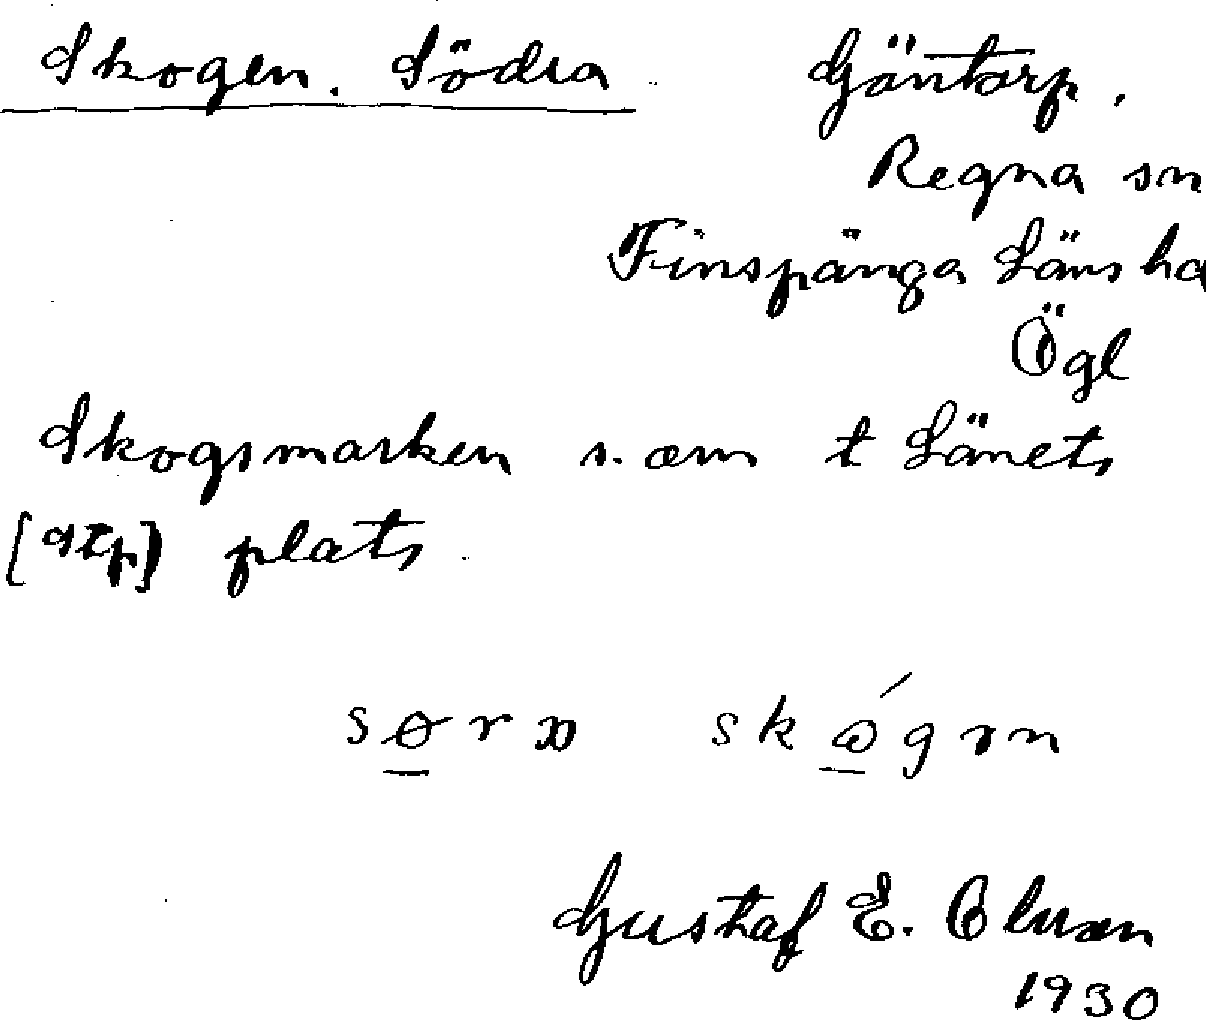 Skogen. Södra Gäntorp.
Regna sn
Finspånga Läns hd
Ögl
Skogsmarken s. om t Länets
plats
Gustaf E. Olsson
1930